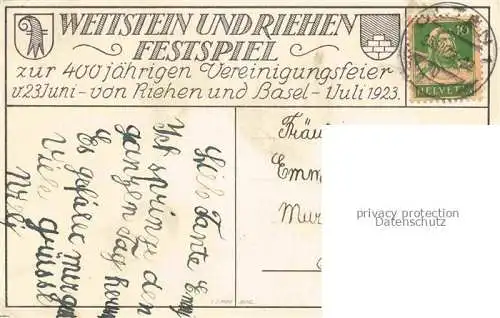 WETTSTEIN UND RIEHEN
FESTSPIEL
zur 400 jährigen Vereinigungsfeier
v. 23 Juni - von Riehen und Basel - 1 Juli 1923.
10
HELVETIA
Liebe Tante Emmy
Ich springe den
ganzen Tag
Es gefällt mir gu
Viele Grüsse
Fräu
Emm
Mur
privacy protection
Datenschutz